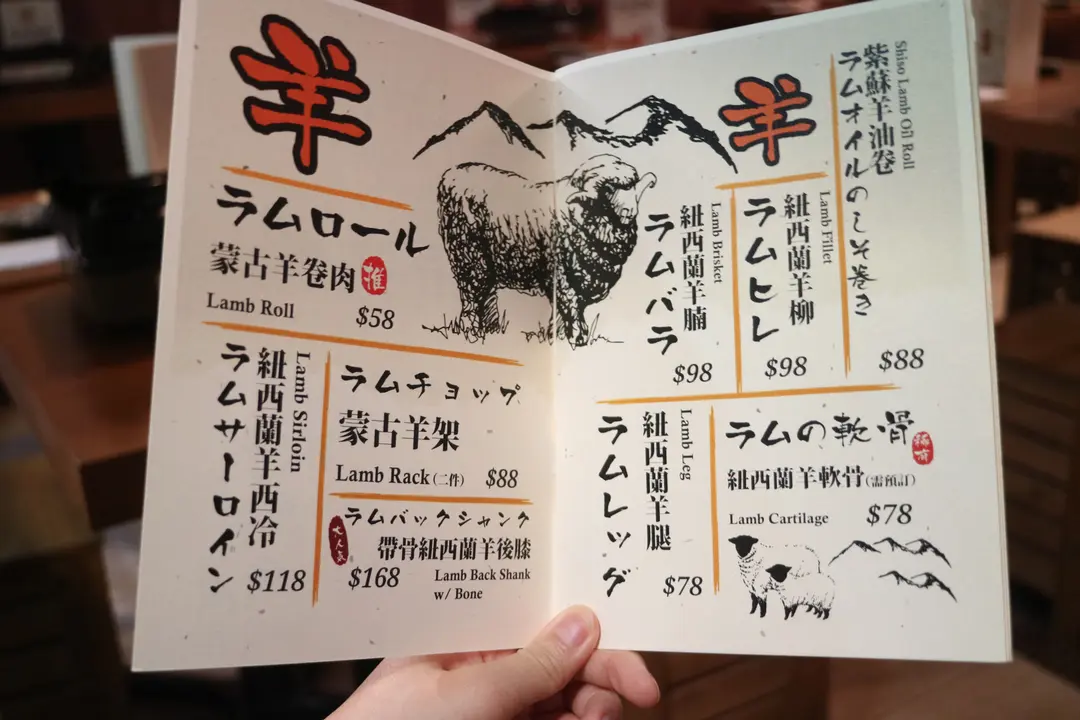 羊
ラムロール
蒙古羊卷肉 推
Lamb Roll $58
Lamb Sirloin
紐西蘭羊西冷
ラムサーロイン
$118
ラムチョップ
蒙古羊架
Lamb Rack (二件) $88
ラムバックシャンク
大人気
帶骨紐西蘭羊後膝
$168
Lamb Back Shank
w/ Bone
羊
Shiso Lamb Oil Roll
紫蘇羊油卷
ラムオイルのしそ巻き
$88
Lamb Fillet
紐西蘭羊柳
ラムヒレ
$98
Lamb Brisket
紐西蘭羊腩
ラムバラ
$98
Lamb Leg
紐西蘭羊腿
ラムレッグ
$78
ラムの軟骨
紐西蘭羊軟骨(需預訂)
Lamb Cartilage $78